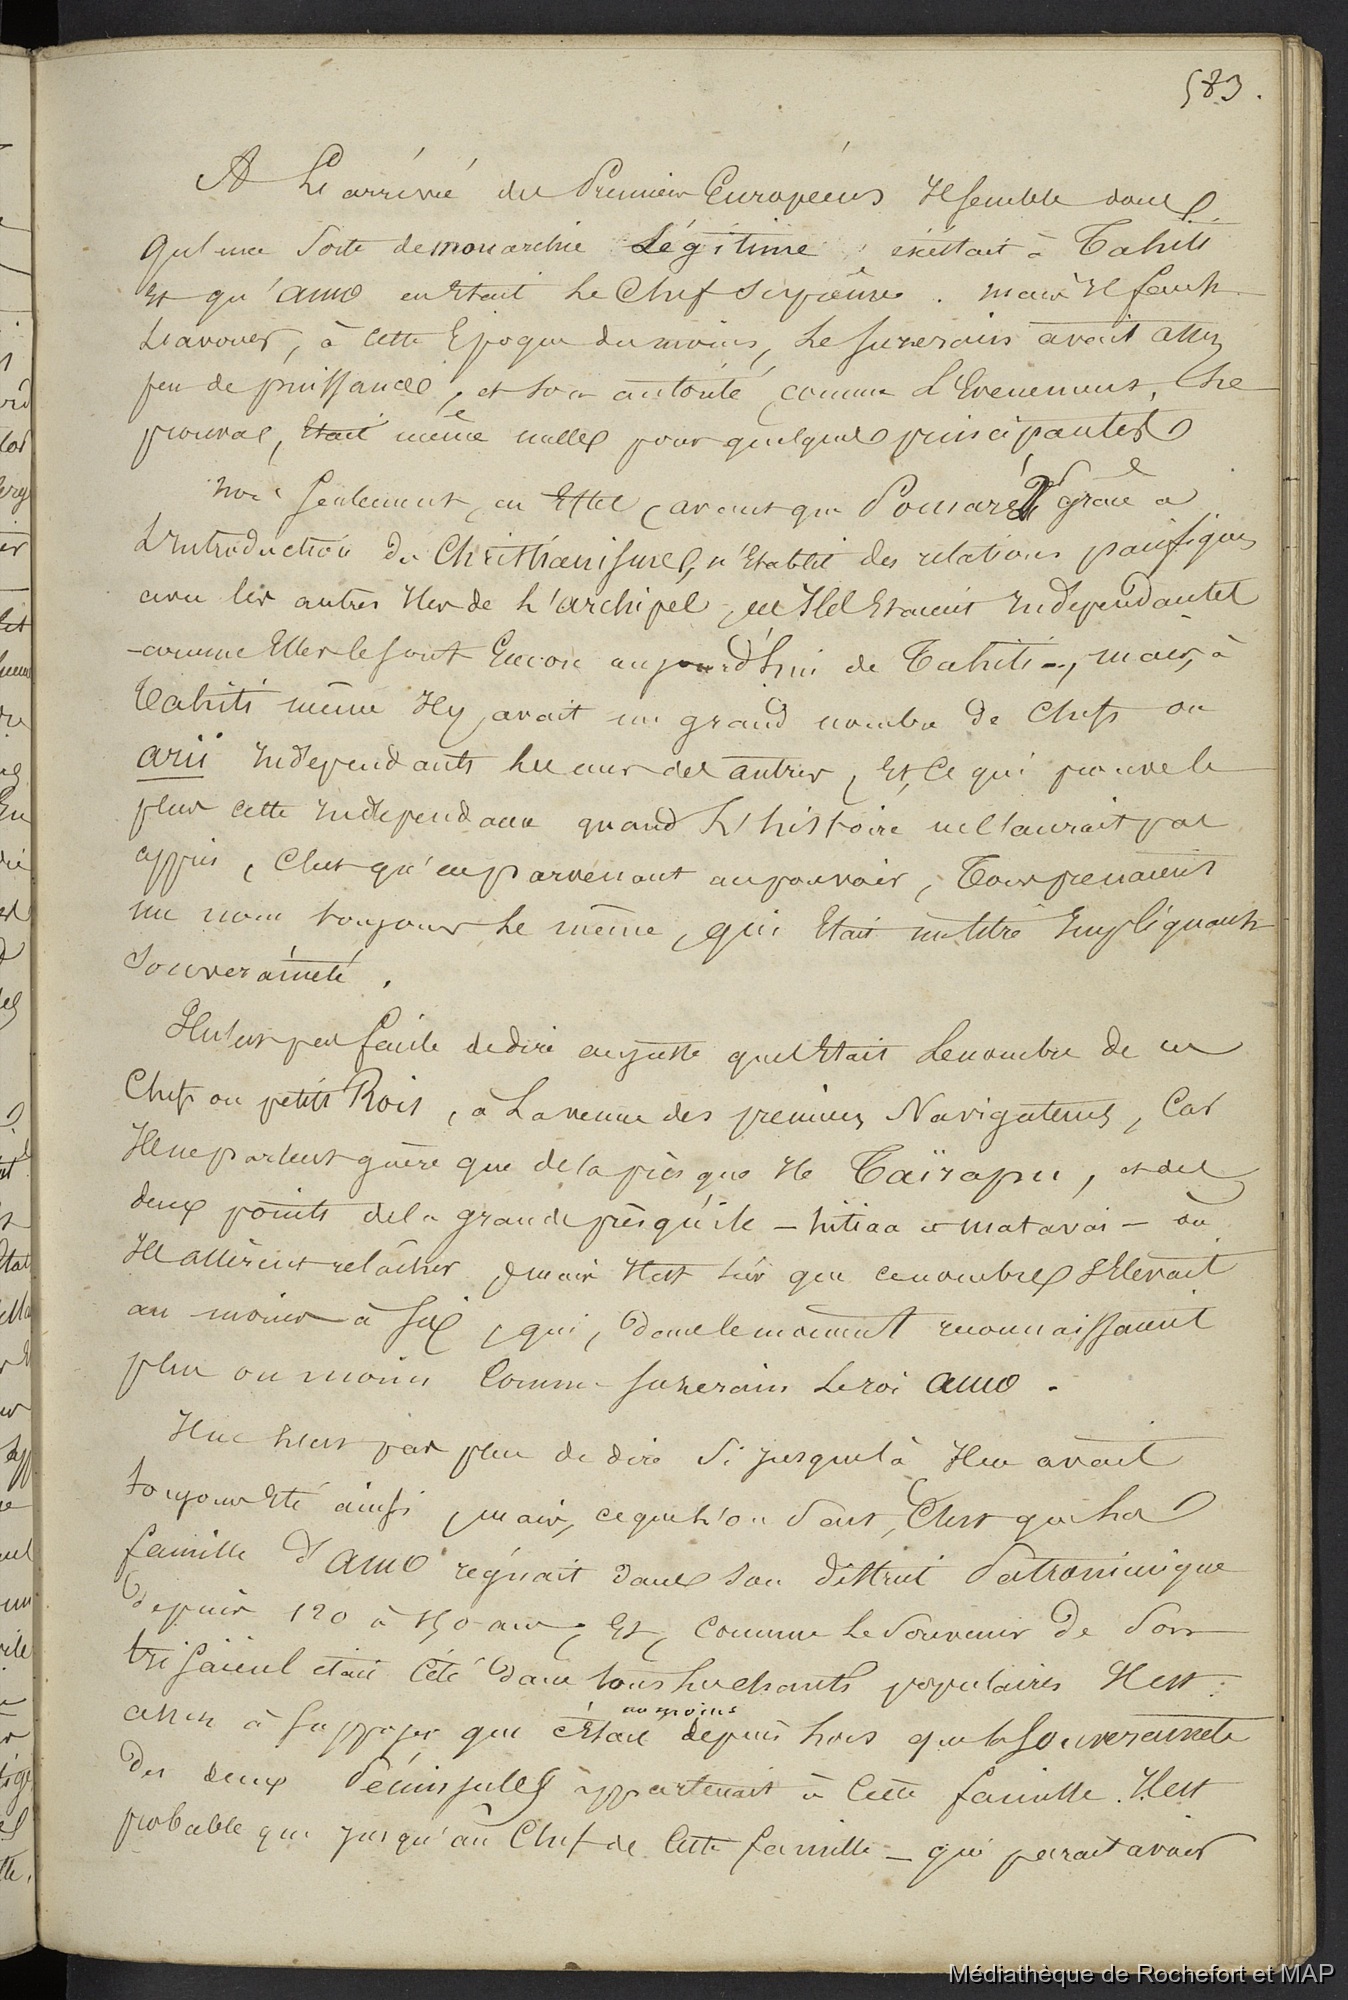 583.
A L'arrivée des Premiers Européens Il semble donc
qu'une sorte de monarchie Légitime existait à Tahiti
Et qu'amo en Etait Le Chef Suprême. mais Il faut
L'avouer, à cette Epoque du moins, Le suzerain avait assez
peu de puissance, et son autorité, comme L'Evenement, Le
prouva, Etait même nulle pour quelques principautés
non seulement, en Effet, avant que Pomaré 2 grâce a
L'Introduction du Christianisme, n'Etablit des relations pacifiques
avec les autres Iles de L'archipel, ces Iles Etaient Independantes
comme Elles le sont Encore aujourd'hui de Tahiti, mais, à
Tahiti même Il y avait un grand nombre de Chefs ou
arii Independants les uns des autres, Et, ce qui prouve le
plus cette Independance quand L'histoire ne l'aurait pas
appris, C'est qu'en parvenant au pouvoir, Tous prenaient
un nom toujours Le même, qui Etait un titre Impliquant
Souveraineté.
Il n'est pas facile de dire au juste quel Etait Le nombre de ces
Chefs ou petits Rois, à La venue des premiers Navigateurs, Car
Ils ne parlent guère que de la presque Ile Taïrapu, et des
deux points de la grande presqu'ile - hitiaa et matavai - où
Ils allèrent relâcher, mais Il est sûr que ce nombre s'Elevait
au moins à six, qui, dans le moment reconnaissaient
plus ou moins Comme suzerain Le roi amo.
Il ne L'est pas plus de dire Si jusque là Il en avait
toujours Eté ainsi, mais, ce que L'on sait, C'est que La
famille d'amo régnait dans son district Patronimique
depuis 120 à 150 ans, Et, comme Le Souvenir de son
trisaïeul était Cité dans tous Les chants populaires Il est
aisé à supposer que c'Etait au moins depuis Lors que la Souveraineté
des deux Péninsules appartenait à Cette famille. Il est
probable que jusqu'au Chef de Cette famille - qui parait avoir
Médiathèque de Rochefort et MAP